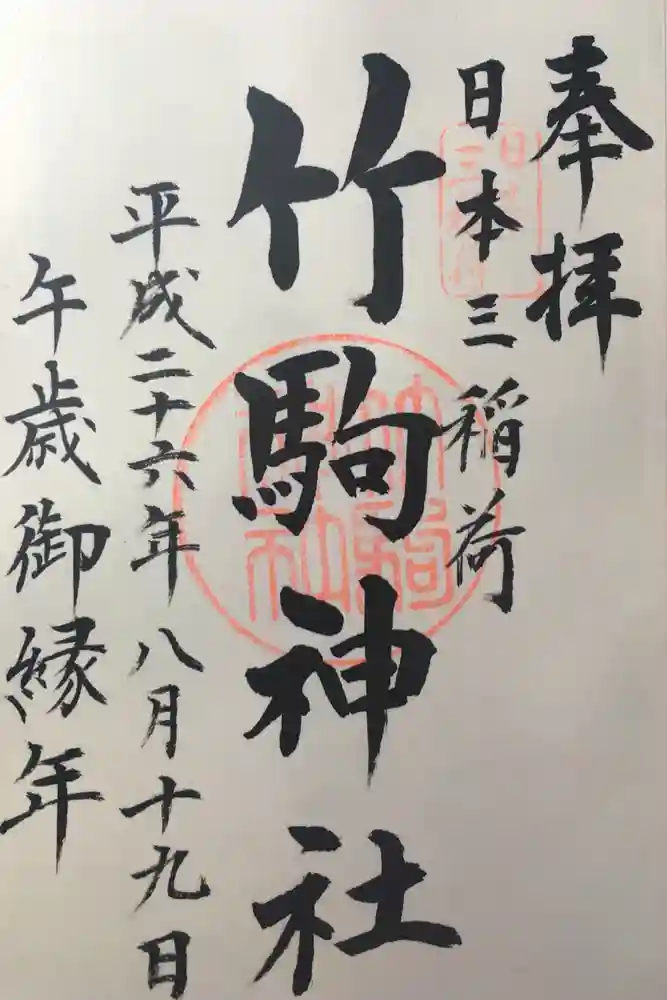 奉拝
日本三稲荷
竹駒神社
平成二十六年八月十九日
午歳御縁年